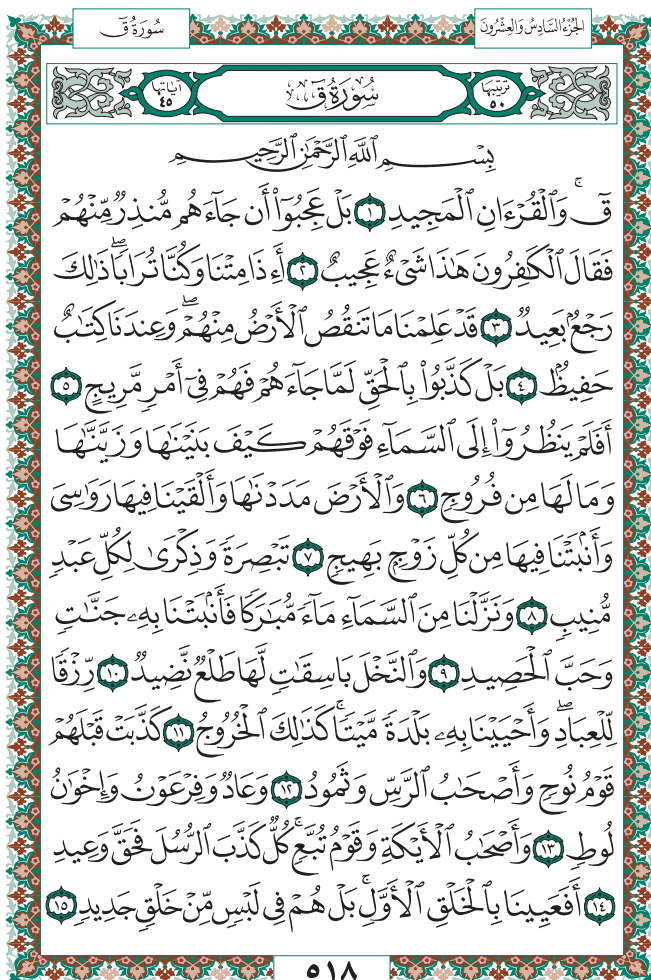 سُورَةُ قٓ
الجُزْءُ السَّادِسُ وَالعِشْرُونَ
تَرْتِيبُهَا ٥٠ سُورَةُ قٓ آيَاتُهَا ٤٥
بِسْمِ ٱللَّهِ ٱلرَّحْمَٰنِ ٱلرَّحِيمِ
قٓۚ وَٱلْقُرْءَانِ ٱلْمَجِيدِ ١ بَلْ عَجِبُوٓا۟ أَن جَآءَهُم مُّنذِرٌ مِّنْهُمْ
فَقَالَ ٱلْكَٰفِرُونَ هَٰذَا شَىْءٌ عَجِيبٌ ٢ أَءِذَا مِتْنَا وَكُنَّا تُرَابًاۖ ذَٰلِكَ
رَجْعٌۢ بَعِيدٌ ٣ قَدْ عَلِمْنَا مَا تَنقُصُ ٱلْأَرْضُ مِنْهُمْۖ وَعِندَنَا كِتَٰبٌ
حَفِيظٌۢ ٤ بَلْ كَذَّبُوا۟ بِٱلْحَقِّ لَمَّا جَآءَهُمْ فَهُمْ فِىٓ أَمْرٍ مَّرِيجٍ ٥
أَفَلَمْ يَنظُرُوٓا۟ إِلَى ٱلسَّمَآءِ فَوْقَهُمْ كَيْفَ بَنَيْنَٰهَا وَزَيَّنَّٰهَا
وَمَا لَهَا مِن فُرُوجٍ ٦ وَٱلْأَرْضَ مَدَدْنَٰهَا وَأَلْقَيْنَا فِيهَا رَوَٰسِىَ
وَأَنۢبَتْنَا فِيهَا مِن كُلِّ زَوْجٍۭ بَهِيجٍ ٧ تَبْصِرَةً وَذِكْرَىٰ لِكُلِّ عَبْدٍ
مُّنِيبٍ ٨ وَنَزَّلْنَا مِنَ ٱلسَّمَآءِ مَآءً مُّبَٰرَكًا فَأَنۢبَتْنَا بِهِۦ جَنَّٰتٍ
وَحَبَّ ٱلْحَصِيدِ ٩ وَٱلنَّخْلَ بَاسِقَٰتٍ لَّهَا طَلْعٌ نَّضِيدٌ ١٠ رِّزْقًا
لِّلْعِبَادِۖ وَأَحْيَيْنَا بِهِۦ بَلْدَةً مَّيْتًاۚ كَذَٰلِكَ ٱلْخُرُوجُ ١١ كَذَّبَتْ قَبْلَهُمْ
قَوْمُ نُوحٍ وَأَصْحَٰبُ ٱلرَّسِّ وَثَمُودُ ١٢ وَعَادٌ وَفِرْعَوْنُ وَإِخْوَٰنُ
لُوطٍ ١٣ وَأَصْحَٰبُ ٱلْأَيْكَةِ وَقَوْمُ تُبَّعٍۚ كُلٌّ كَذَّبَ ٱلرُّسُلَ فَحَقَّ وَعِيدِ
١٤ أَفَعَيِينَا بِٱلْخَلْقِ ٱلْأَوَّلِۚ بَلْ هُمْ فِى لَبْسٍ مِّنْ خَلْقٍ جَدِيدٍ ١٥
٥١٨